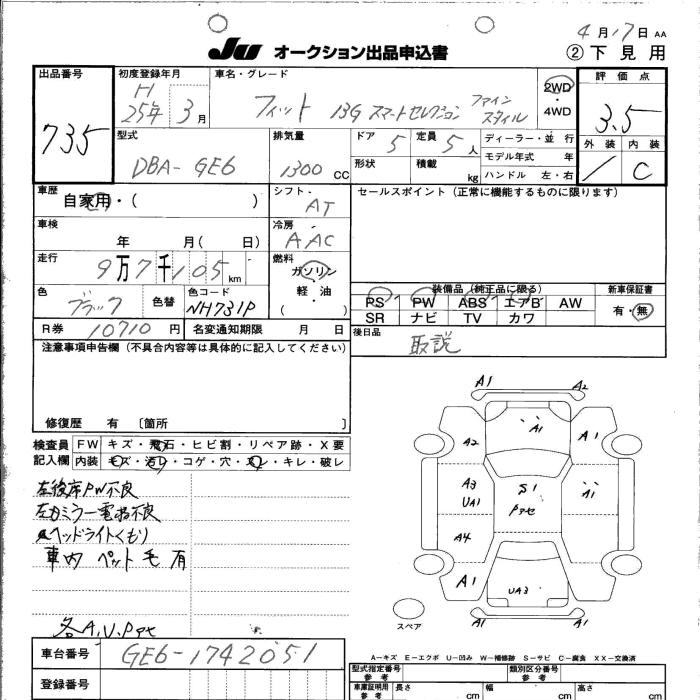 4月17日 AA
JU オークション出品申込書
② 下見用
出品番号
735
初度登録年月
H 25年 3月
車名・グレード
フィット 13G スマートセレクション ファインスタイル
2WD・4WD
評価点
3.5
外装 内装
C
型式
DBA-GE6
排気量
1300 CC
ドア 5
定員 5人
形状
積載 kg
ディーラー・並行
モデル年式 年
ハンドル 左・右
車歴
自家用・( )
シフト AT
セールスポイント (正常に機能するものに限ります)
車検
年 月( 日)
冷房
AAC
走行
9万7千105km
燃料
ガソリン・軽・油
( )
色
ブラック
色替
色コード
NH731P
装備品 (純正品に限る)
PS PW ABS エアB AW
SR ナビ TV カワ
新車保証書
有・無
R券 10710円
名変通知期限 月 日
後日品
取説
注意事項申告欄 (不具合内容等は具体的に記入してください)
修復歴 有 〔箇所 〕
検査員記入欄
FW キズ・飛石・ヒビ割・リペア跡・X要
内装 キズ・汚レ・コゲ・穴・スレ・キレ・破レ
左後席PW不良
左カミラー電格不良
ヘッドライトくもり
車内 ペット毛 有
各A,U,Pアセ
A1 A2
A1
A2 A1
A3
UA1
S1
Pアセ
A1
A4
A1
UA3
A1 A1
スペア
A-キズ E-エクボ U-凹み W-補修跡 S-サビ C-腐食 XX-交換済
車台番号
GE6-1742051
登録番号
型式指定番号
参考
類別区分番号
参考
車庫証明用
参考
長さ cm
幅 cm
高さ cm